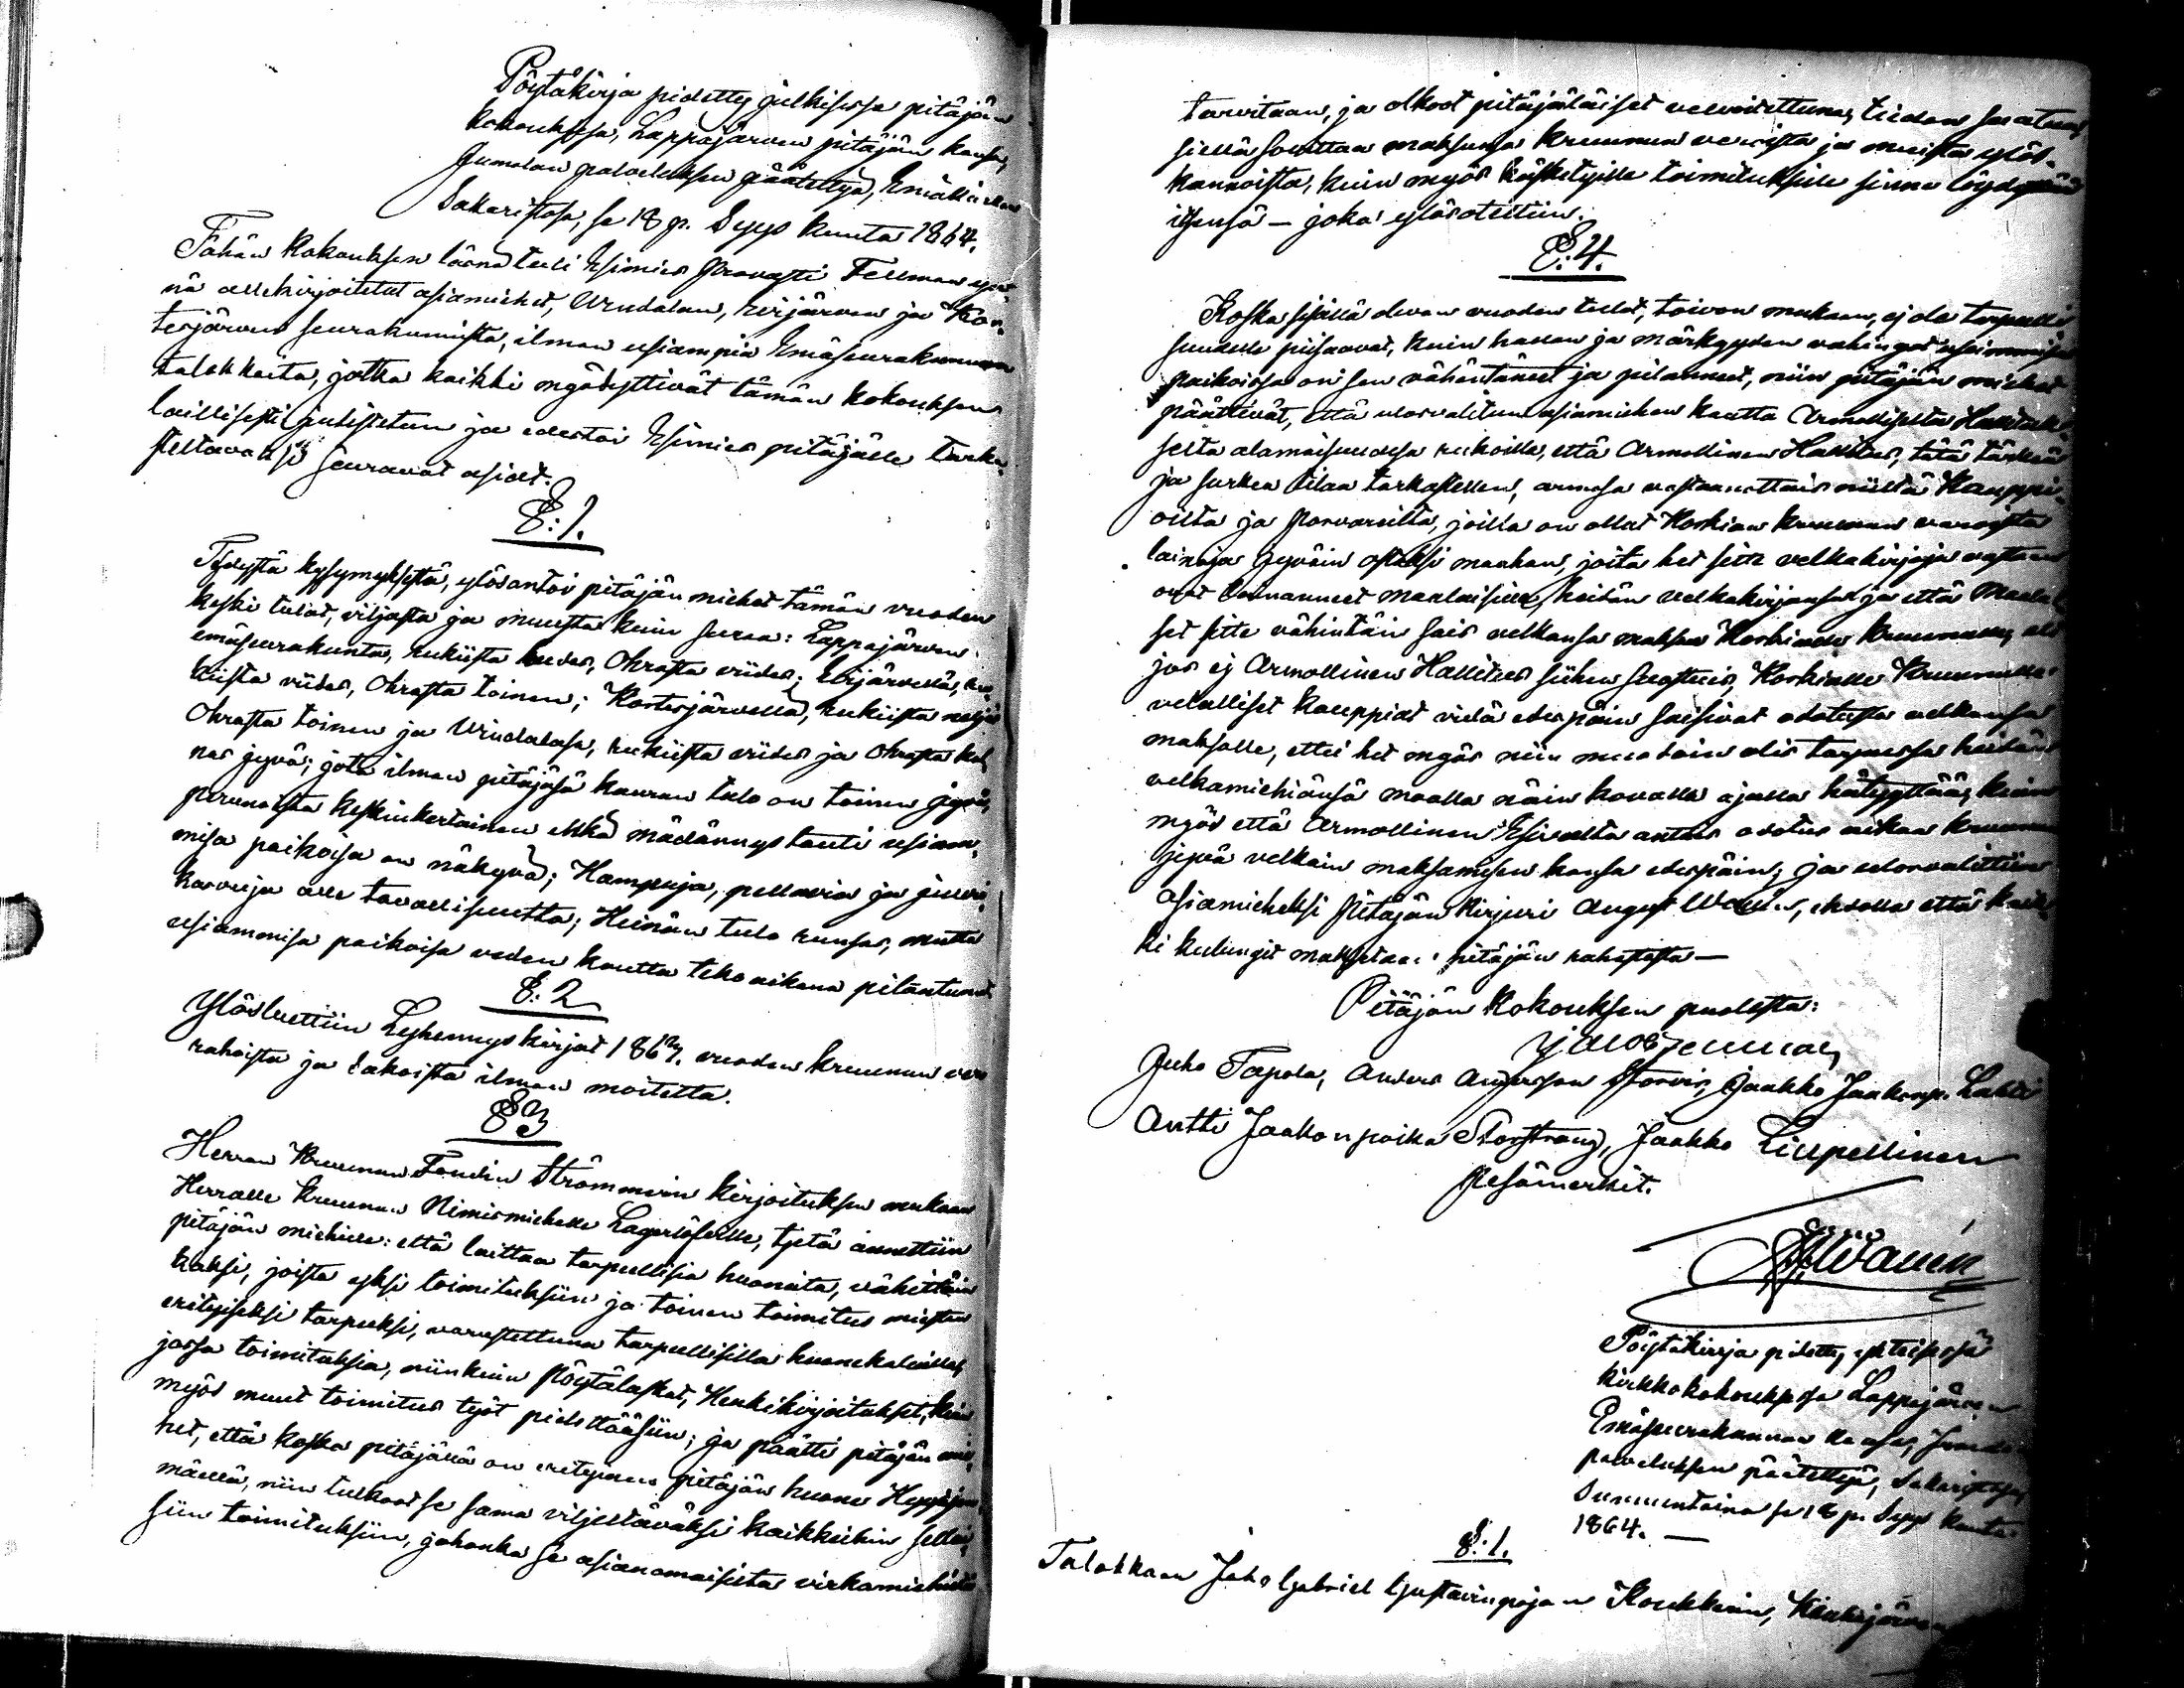 Pöytäkirja pidetty julkisessa pitäjän
kokouksessa, Lappajärven pitäjän kansa,
Jumalan palveluksen päätettyä, Emäkirkon
Sakaristosa, se 18 p. Syys kuuta 1864.
Tähän kokouksen läsnä tuli Esimies Provasti Fellman ynnä
nä allekirjoitetut asiamiehet, Windalan, Evijärven ja Kor-
tesjärven seurakunnista, ilman usiampia Emäseurakunnan
talokkaita, jotka kaikki myödyttivät tämän kokouksen
laillisesti julistetun ja edestoi Esimies pitäjälle tarka-
steltavaksi seuravat asiat.
§: 1.
Tehdystä kysymyksestä, ylösantoi pitäjän miehet tämän vuoden
keski tulot, viljasta ja muusta kuin seuraa: Lappajärven
emäseurakunta, rukiista kudes, Ohrasta viides; Evijärvellä, ru-
kiista viides, Ohrasta toinen; Kortesjärvellä, rukiista neljäs
Ohrasta toinen ja Windalasa, rukiista viides ja Ohrasta kol-
mas jyvä; jota ilman pitäjäsä kauran tulo on toinen jyvä,
perunoista keskinkertainen ehkä mädännystauti usiam-
misa paikoisa on näkyvä; Hampuja, pellavia ja juuri-
kasvuja alle tavallisuutta; Heinän tulo runsas, mutta
usiammisa paikoisa veden kautta teko aikana pilantunut.
§: 2
Ylösluettiin Lyhennyskirjat 1863. vuoden kruunun vero
rahoista ja Sakoista ilman moitetta.
§ 3
Herran Kruunun Foudin Strömmerin kirjoituksen mukaan
Herralle kruunun Nimismiehelle Lagerlöfille, tjetä annettiin
pitäjän miehille: että laittaa tarpeellisia huoneita, vähittäin
kaksi, joista yksi toimituksiin ja toinen toimitus miesten
erityiseksi tarpeeksi, varustettuna tarpeellisilla huonekaluilla,
jossa toimituksia, niinkuin Pöytälaskut, Henkikirjoitukset, kuin
myös muut toimitus työt pidettääsiin; ja päätti pitäjän mie-
het, että koska pitäjällä on erityinen pitäjän huone Hyypän-
mäellä, niin tulkoot se sama viljeltäväksi kaikkiihin sellai-
siin toimituksiin, johonka se asianomaisilta virkamiehiltä
tarvitaan, ja olkoot pitäjäläiset velvoitettuna, tiedon saatua,
siellä soittaa maksunsa kruunun veroista ja muista ylös-
kannoista, kuin myös käsketyille toimituksille sinne löydyttää
itsensä — joka ylösotettiin.
§: 4.
Koska sisällä olevan vuoden tulot, toivon mukaan, ej ole tarpeelli-
suudelle piisaavat, kuin hallan ja märkyyden vahingot usiammisa
paikoissa on sen vähentäneet ja pilanneet, niin pitäjän miehet
päättivät, että ulosvalitun asiamiehen kautta Armolliselta Hallituk-
selta alamaisuudesa rukoilla, että Armollinen Hallitus, tätä tärkiää
ja surkea tilaa tarkastellen, armosa vastaanottais niiltä Kauppi-
oilta ja Porvareilta, joilla on ollut Korkian kruunun varoista
lainoja jyväin ostoksi maahan, joita het sitte velkakirjoja vastaan
ovat lainanneet maalaisille, heidän velkakirjansa ja että Maalai-
set sitte vähintäin sais velkansa maksaa Korkialle kruunulle, eli
jos ej Armollinen Hallitus siihen suostuis, Korkialle Kruunulle
velalliset kauppiat vielä edespäin saisivat odotusta velkansa
maksolle, ettei het myös niin muotoin olis tarpeessa heidän
velkamiehiänsä maalla näin kovalla ajalla hätyyttää, kuin
myös että Armollinen Esivalta antais odotus aikaa kruunun
jyvä velkain maksamisen kansa edespäin; ja ulosvalittiin
asiamieheksi Pitäjän Kirjuri August Walin, ehdolla että kaik-
ki kulungit maksetaan pitäjän rahastosta —
Pitäjän Kokouksen puolesta:
Jacob Fellman
Juho Tapola, Anders Andersson Storvis, Jaakko Jaakonp. Lahti
Antti Jaakonpoika Storstrang, Jaakko Liupellinen
Pesämerkit.
Walin
Pöytäkirja pidetty ylteisesä
kirkkokokouksessa Lappajärven
Emäseurakunnan kansa, Jumalan
palveluksen päätettyä, Sakaristosa,
Sunnuntaina se 18 p. Syys kuuta
1864. —
§: 1.
Talokkaan Juho Gabriel Gustavinpojan Koukkarin, Kauhajärven